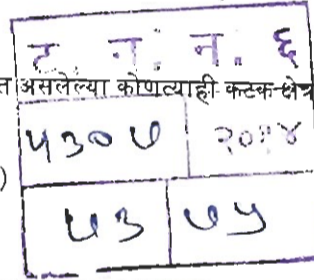 ट. न. न. ६
त असलेल्या कोणत्याही कटक-क्षेत्र
५३०७ २०१४
)
५३ ७५